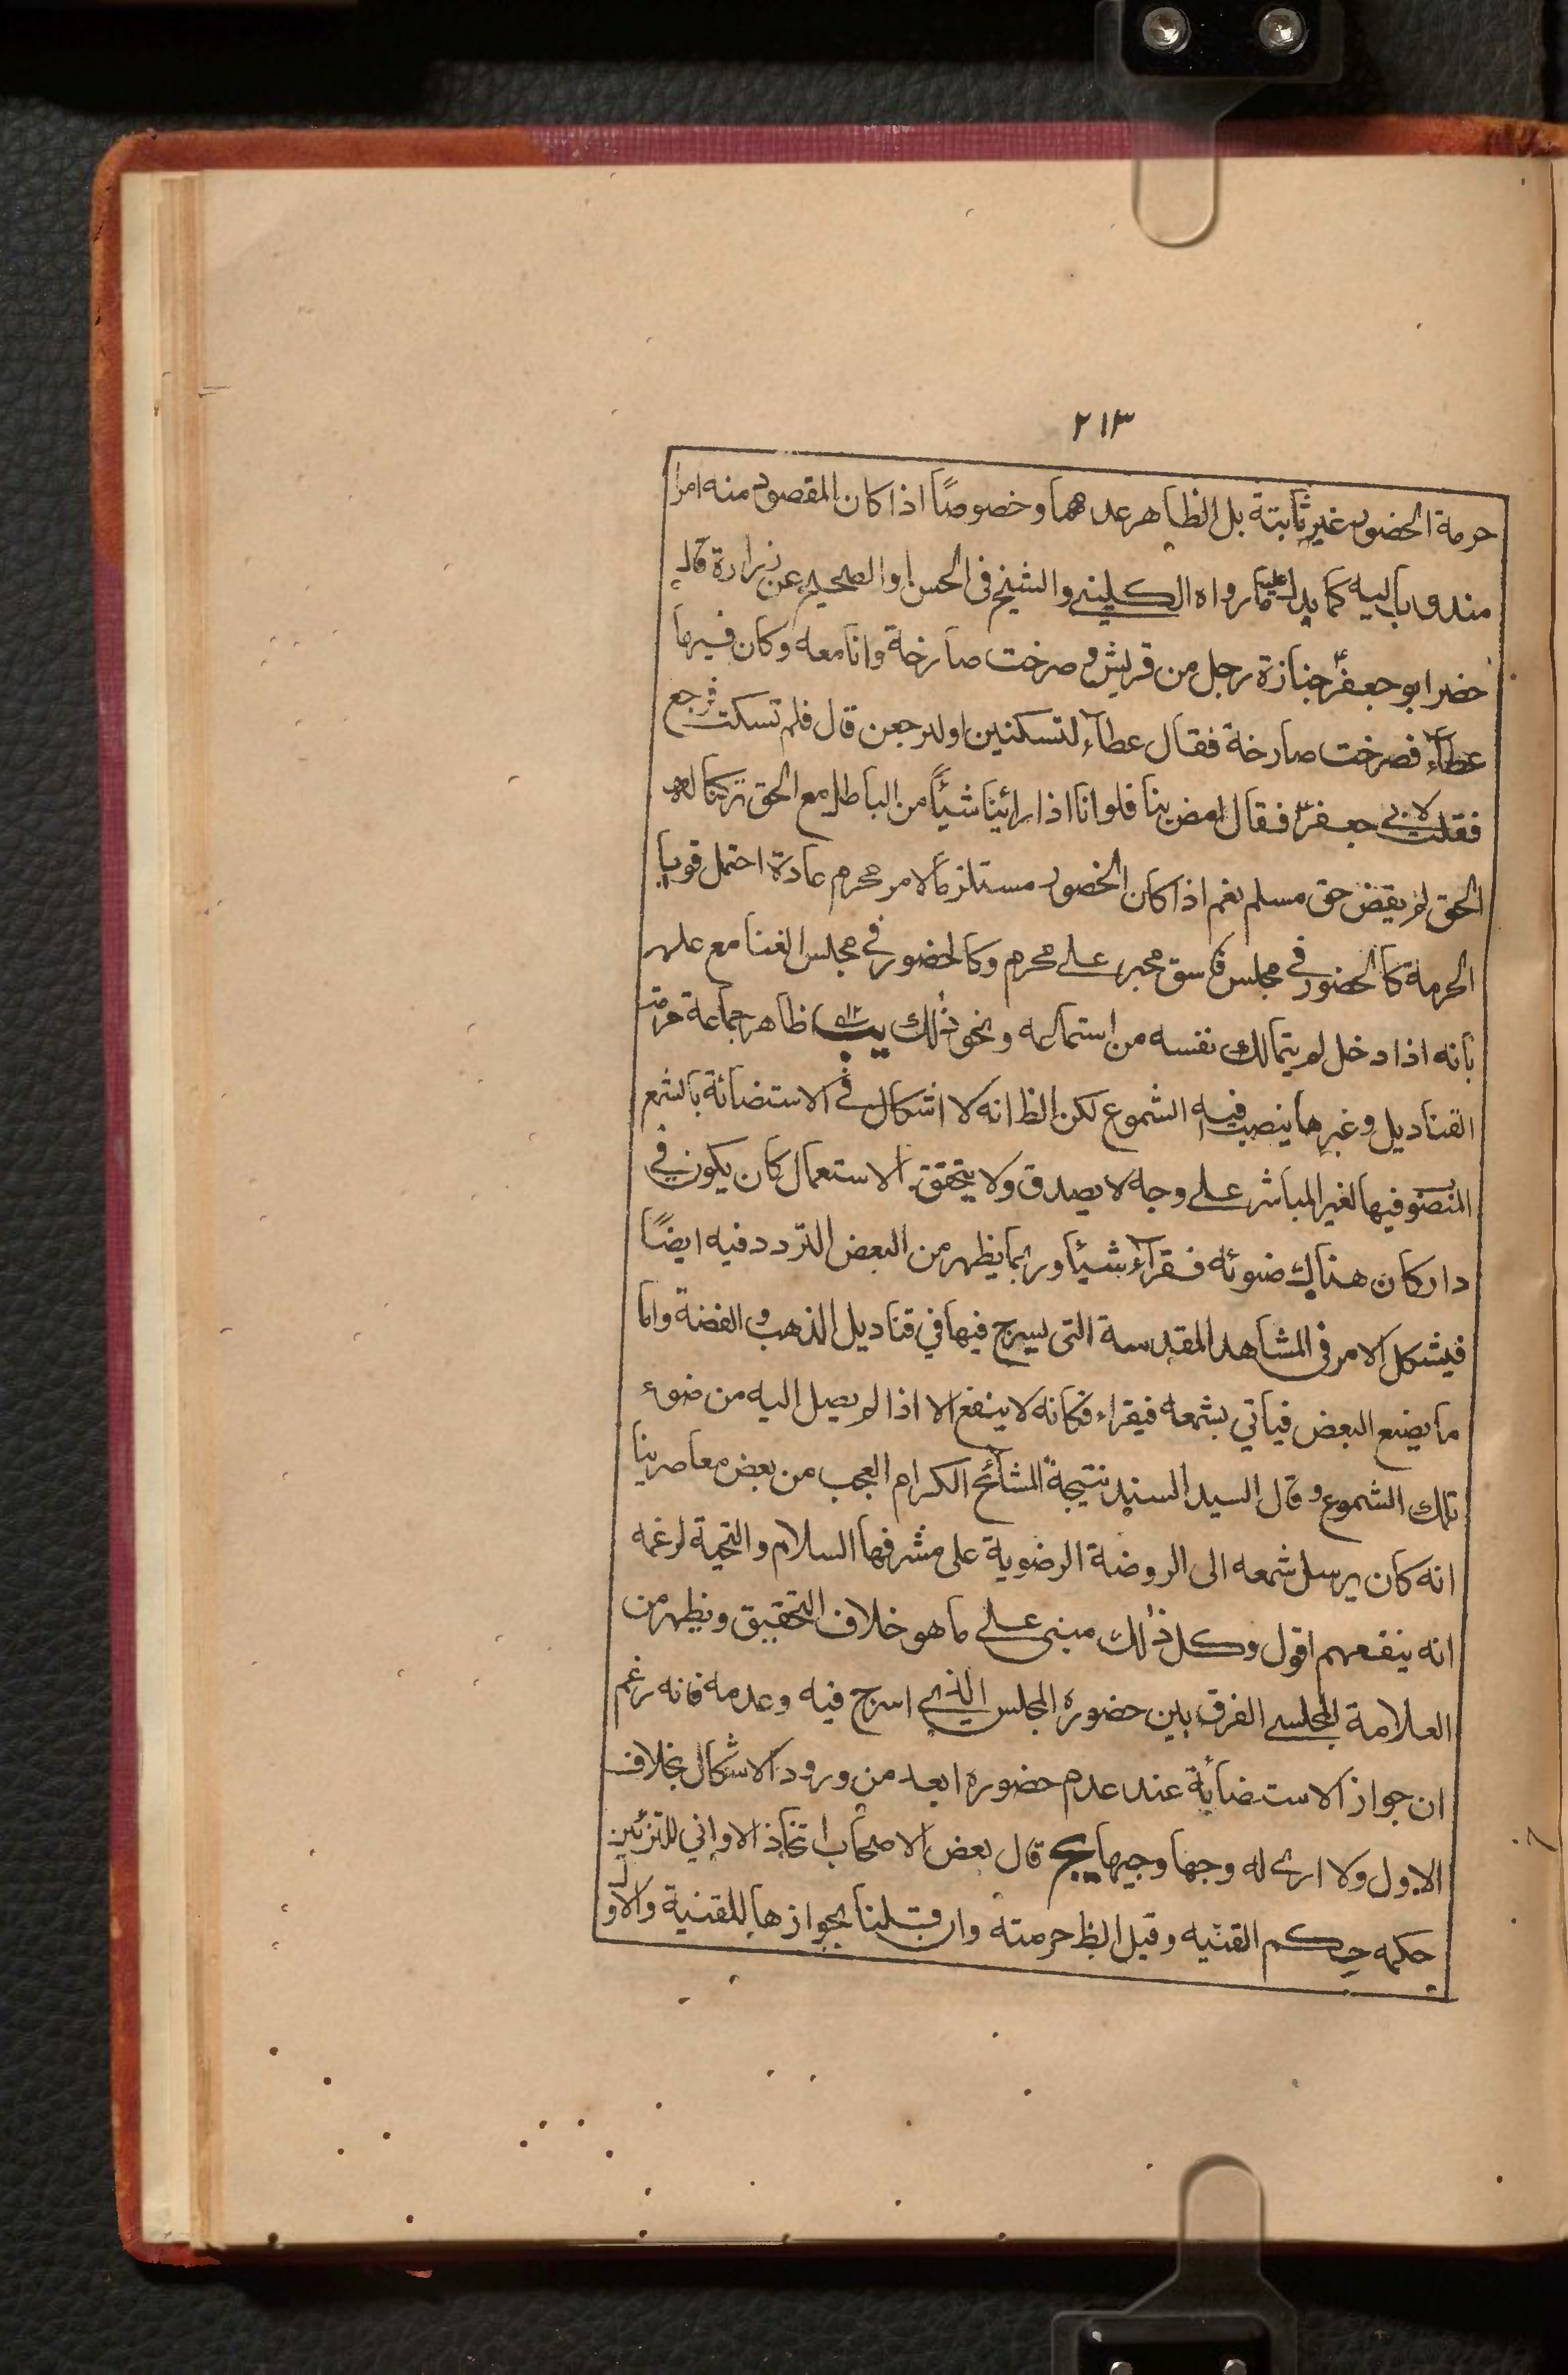 ٢١٣
حرمة الحضور غير ثابتة بل الظاهر عدمها وخصوصًا اذا كان المقصود منه امرا
مندوبا اليه كما يدل عليه ما رواه الكليني والشيخ فى الحسن او الصحيح عن زرارة قال
حضر ابو جعفر جنازة رجل من قريش و صرخت صارخة وانا معه وكان فيها
عطاء فصرخت صارخة فقال عطاء لتسكنين اولنرجعن قال فلم تسكت فرجع
فقلت لابي جعفر فقال امض بنا فلو انا اذا رائينا شيئًا من الباطل مع الحق تركنا له
الحق لم نقض حق مسلم نعم اذا كان الحضور مستلزما لامر محرم عادة احتمل قويا
الحرمة كالحضور في مجلس فاسق مجبر على محرم وكالحضور في مجلس الغنا مع علمه
بانه اذا دخل لم يتمالك نفسه من استماعه ونحو ذلك يب ظاهر جماعة حرمة
القناديل وغيرها ينصب فيه الشموع لكن الظ انه لا اشكال في الاستضائة بالشمع
المنصو فيها لغير المباشر على وجه لا يصدق ولا يتحقق الاستعمال كان يكون في
دار كان هناك ضوئه فقراء شيئا وربما يظهر من البعض التردد فيه ايضًا
فيشكل الامر فى المشاهد المقدسة التى يسرج فيها في قناديل الذهب و الفضة واما
ما يصنع البعض فياتي بشمعه فيقراء فكانه لا ينفع الا اذا لم يصل اليه من ضوء
تلك الشموع و قال السيد السند نتيجة المشائخ الكرام العجب من بعض معاصرينا
انه كان يرسل شمعه الى الروضة الرضوية على مشرفها السلام والتحية لزعمه
انه ينفعهم اقول وكل ذلك مبنى على ما هو خلاف التحقيق ويظهر من
العلامة المجلسي الفرق بين حضوره المجلس الذي اسرج فيه وعدمه فانه زعم
ان جواز الاستضائة عند عدم حضوره ابعد من ورود الاشكال بخلاف
الاول ولا ارى له وجها وجيها يج قال بعض الاصحاب اتخاذ الاواني للتزئين
حكمه حكم القنيه وقيل الظ حرمته وان قلنا بجوازها للقنية والاول